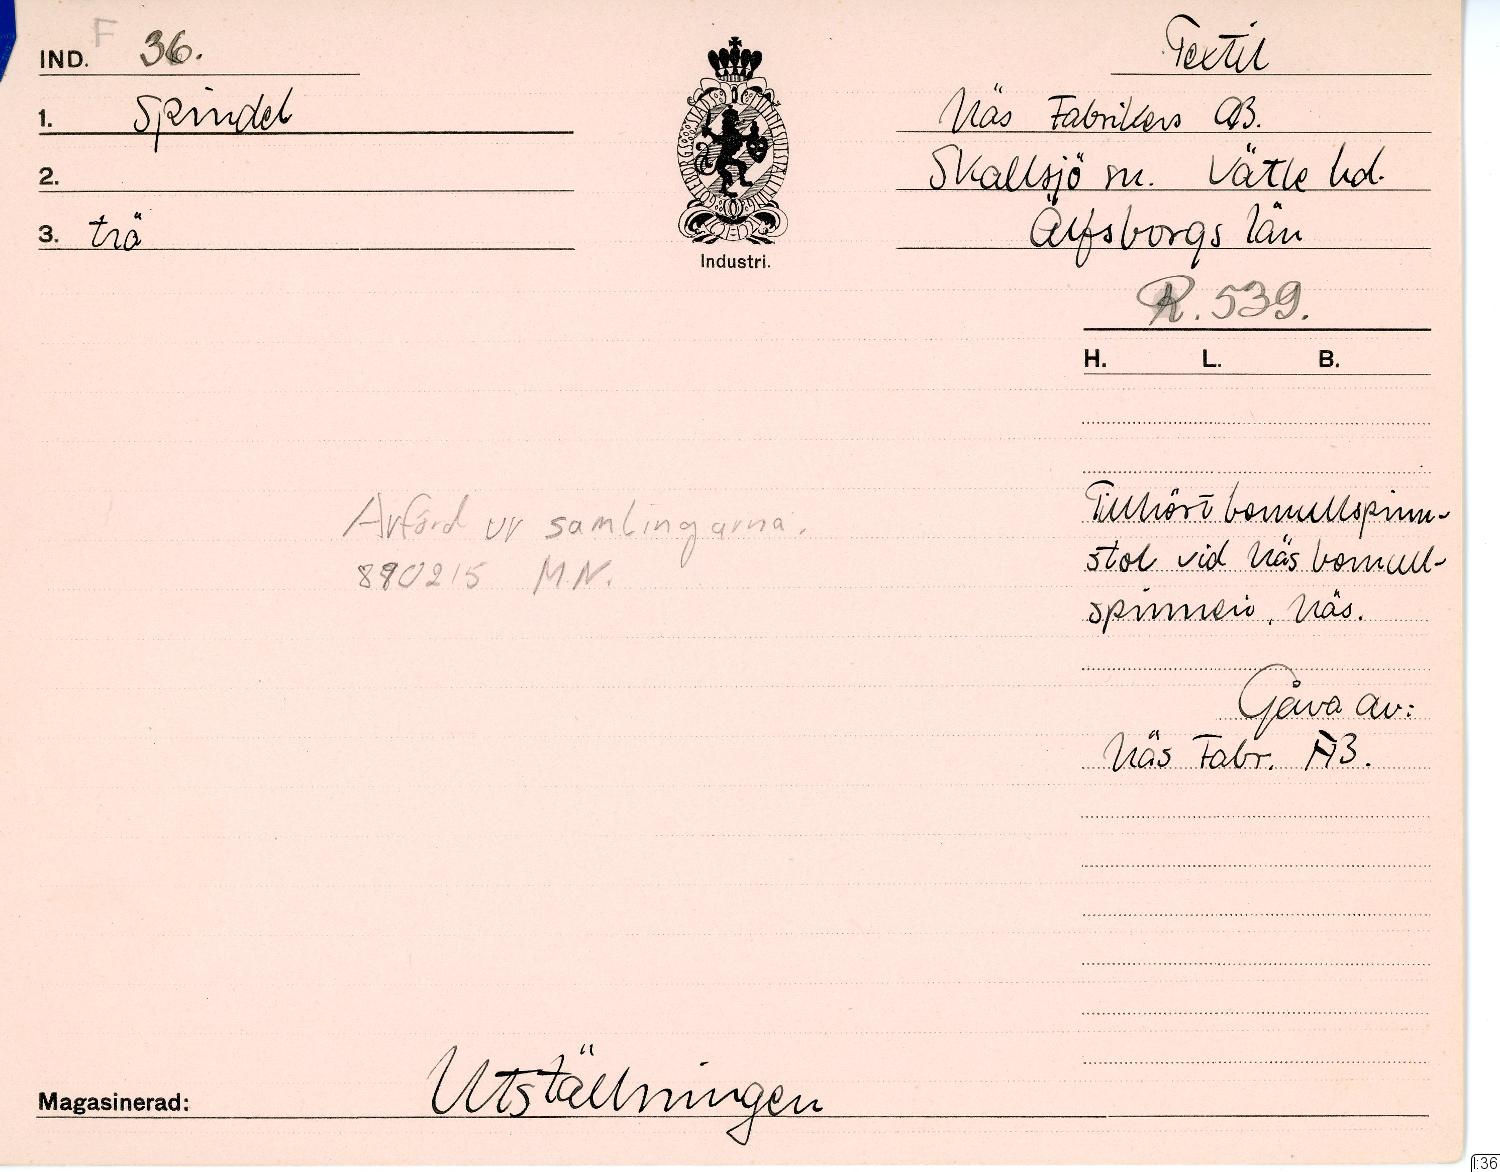 F
IND. 36.
Textil
1. Spindel
Näs Fabrikers AB.
2.
Skallsjö sn. Vätle hd.
3. trä
Älfsborgs län
Industri.
R. 539.
H. L. B.
Tillhört bomullsspinn-
stol vid Näs bomull-
spinneri, Näs.
Avförd ur samlingarna.
880215 M.N.
Gåva av:
Näs Fabr. AB.
Magasinerad: Utställningen
I:36